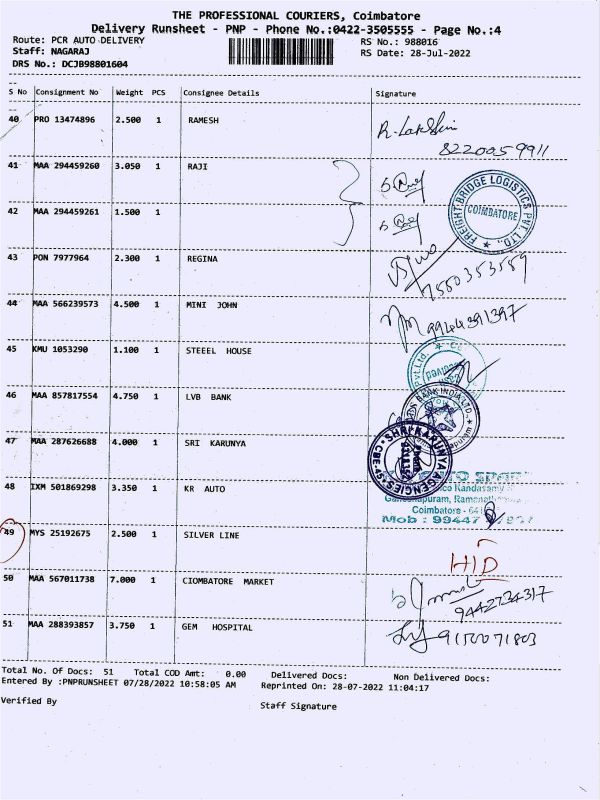 THE PROFESSIONAL COURIERS, Coimbatore
Delivery Runsheet - PNP - Phone No.:0422-3505555 - Page No.:4
Route: PCR AUTO DELIVERY RS No.: 988016
Staff: NAGARAJ RS Date: 28-Jul-2022
DRS No.: DCJB98801604
S No Consignment No Weight PCS Consignee Details Signature
40 PRO 13474896 2.500 1 RAMESH
8220059911
41 MAA 294459260 3.050 1 RAJI
FREIGHT BRIDGE LOGISTICS PVT. LTD.,
COIMBATORE
42 MAA 294459261 1.500 1
43 PON 7977964 2.300 1 REGINA
7550353559
44 MAA 566239573 4.500 1 MINI JOHN
9944391397
45 KMU 1053290 1.100 1 STEEEL HOUSE
Pvt.Ltd.
46 MAA 857817554 4.750 1 LVB BANK
BANK INDIA LTD.
47 MAA 287626688 4.000 1 SRI KARUNYA
SHRI KARUNYA AGENCIES
CBE-45
48 IXM 501869298 3.350 1 KR AUTO
Coimbatore - 641
Mob : 99447
49 MYS 25192675 2.500 1 SILVER LINE
H/D
50 MAA 567011738 7.000 1 CIOMBATORE MARKET
9442734317
51 MAA 288393857 3.750 1 GEM HOSPITAL
9150071803
Total No. Of Docs: 51 Total COD Amt: 0.00 Delivered Docs: Non Delivered Docs:
Entered By :PNPRUNSHEET 07/28/2022 10:58:05 AM Reprinted On: 28-07-2022 11:04:17
Verified By Staff Signature